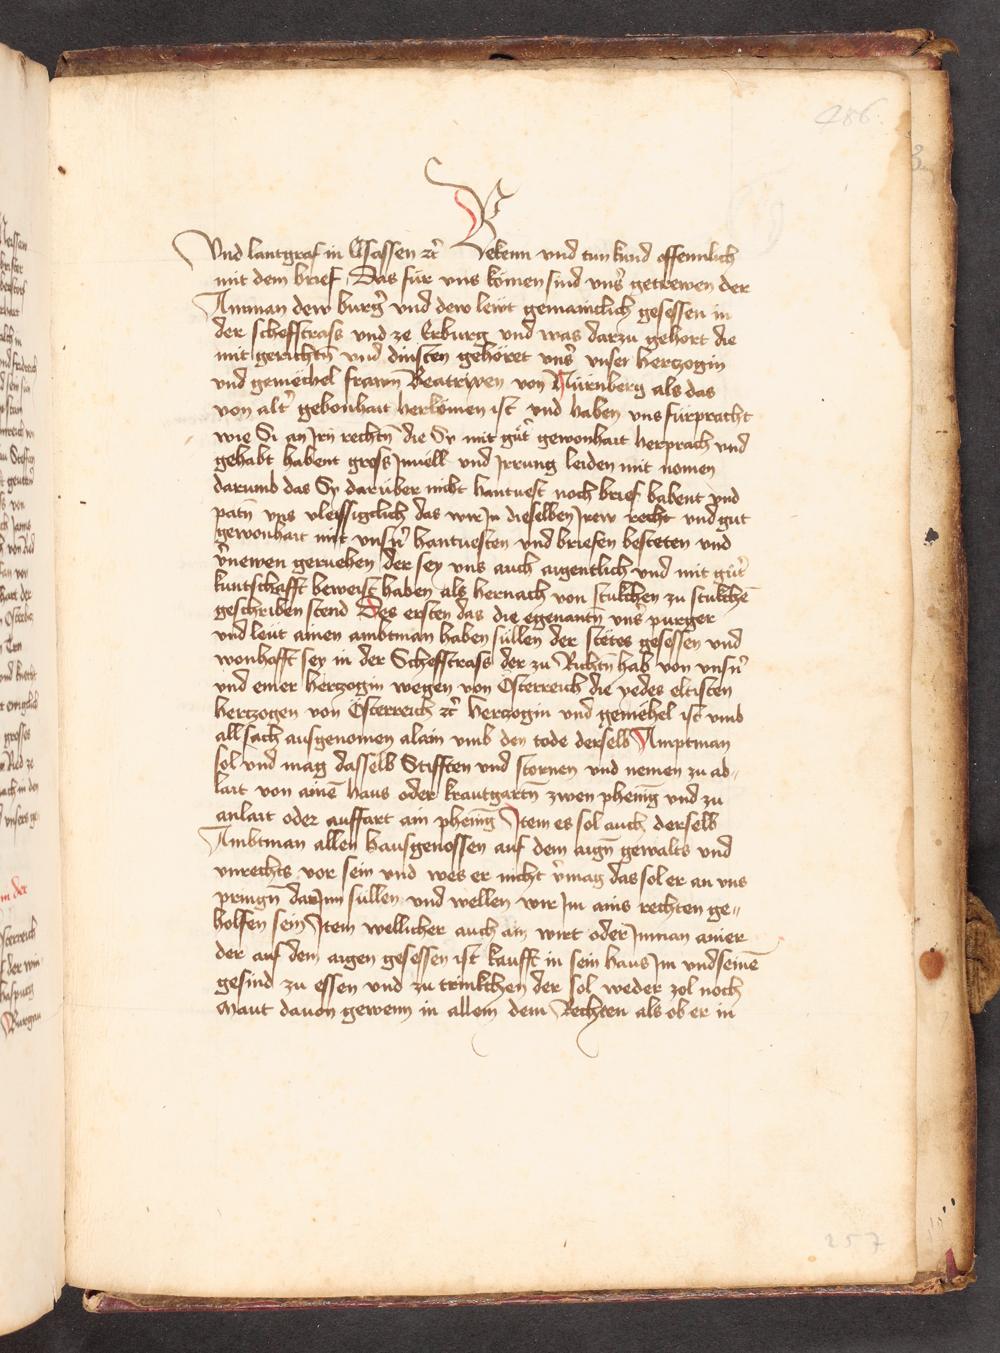 486.
B
Vnd lantgraf in Elsassen zc Bekenn vnd tun kund offennlich
mit dem brief Das für vns kömen sind vns̉ getrewen der
Amman dew burg̉ vnd dew lewt gemainclich gesessen in
der scheffstrass vnd ze Erburg vnd was darzu gehort die
mit gerichtn̄ vnd dinsten gehöret vns̉ vnser hertzogin
vnd gemëchel frawn Beatrixen von Nürnberg als das
von alt̉ gebonhait herkömen ist vnd haben vns fürpracht
wie Si an Jrn̄ rechtn̄ die Sy mit gůt̉ gewonhait herprach vnd
gehabt habent gross Jnuëll vnd Jrrung leiden mit nomen
darumb das Sy darüber nicht hantuest noch brief habent vnd
patn vns vleissigclich das wir Jn dieselben Jrew recht vnd gut
gewonhait mit vnsn̉ hantuesten vnd briefen besteten vnd
v̉newen geruehen der sey vns auch aigentlich vnd mit gůt̉
kuntschafft beweist haben als hernach von stukchen zu stukchē
geschriben stend Des ersten das die egenantn̄ vns̉ purger
vnd leüt ainen ambtman haben süllen der stëtes gesessen vnd
wonhafft sey in der Scheffstrass der zu Richtn hab von vnsn̉
vnd einer hertzogin wegen von Österreich die yedes eltisten
hertzogen von Österreich zc hertzogin vnd gemëhel ist vmb
all sach ausgenomen alain vmb den tode derselb Amptman
sol vnd mag dasselb Stifften vnd stornen vnd nemen zu ab-
lait von ainē haus oder krautgartn̄ zwen phenīg vnd zu
anlait oder auffart ain phenīg Jtem es sol auch derselb
Ambtman allen hausgenossen auf dem aign̄ gewalts vnd
vnrechts vor sein vnd wes er nicht v̉mag das sol er an vns
pringn̄ darJnn süllen vnd wellen wir Jm ains rechten ge-
holfen sein Jtem wellicher auch ain wirt oder Jnman ainer
der auf dem aigen gesessen ist kaufft in sein haus Jm vnd seinē
gesind zu essen vnd zu trinkchen der sol weder zol noch
Maut dauon gewenn in allem dem Rechten als ob er in
257